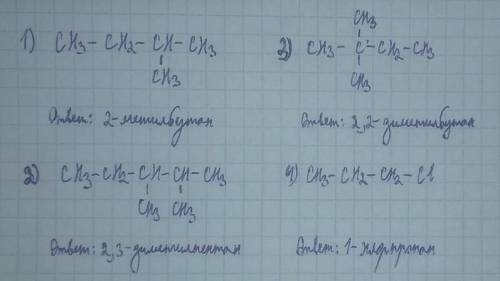 1) CH3-CH2-CH-CH3
CH3
Ответ: 2-метилбутан
2) CH3-CH2-CH-CH-CH3
CH3 CH3
Ответ: 2,3-диметилпентан
CH3
3) CH3-C-CH2-CH3
CH3
Ответ: 2,2-диметилбутан
4) CH3-CH2-CH2-Cl
Ответ: 1-хлорпропан